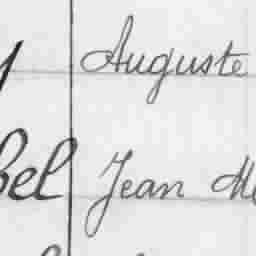 Auguste
bel Jean